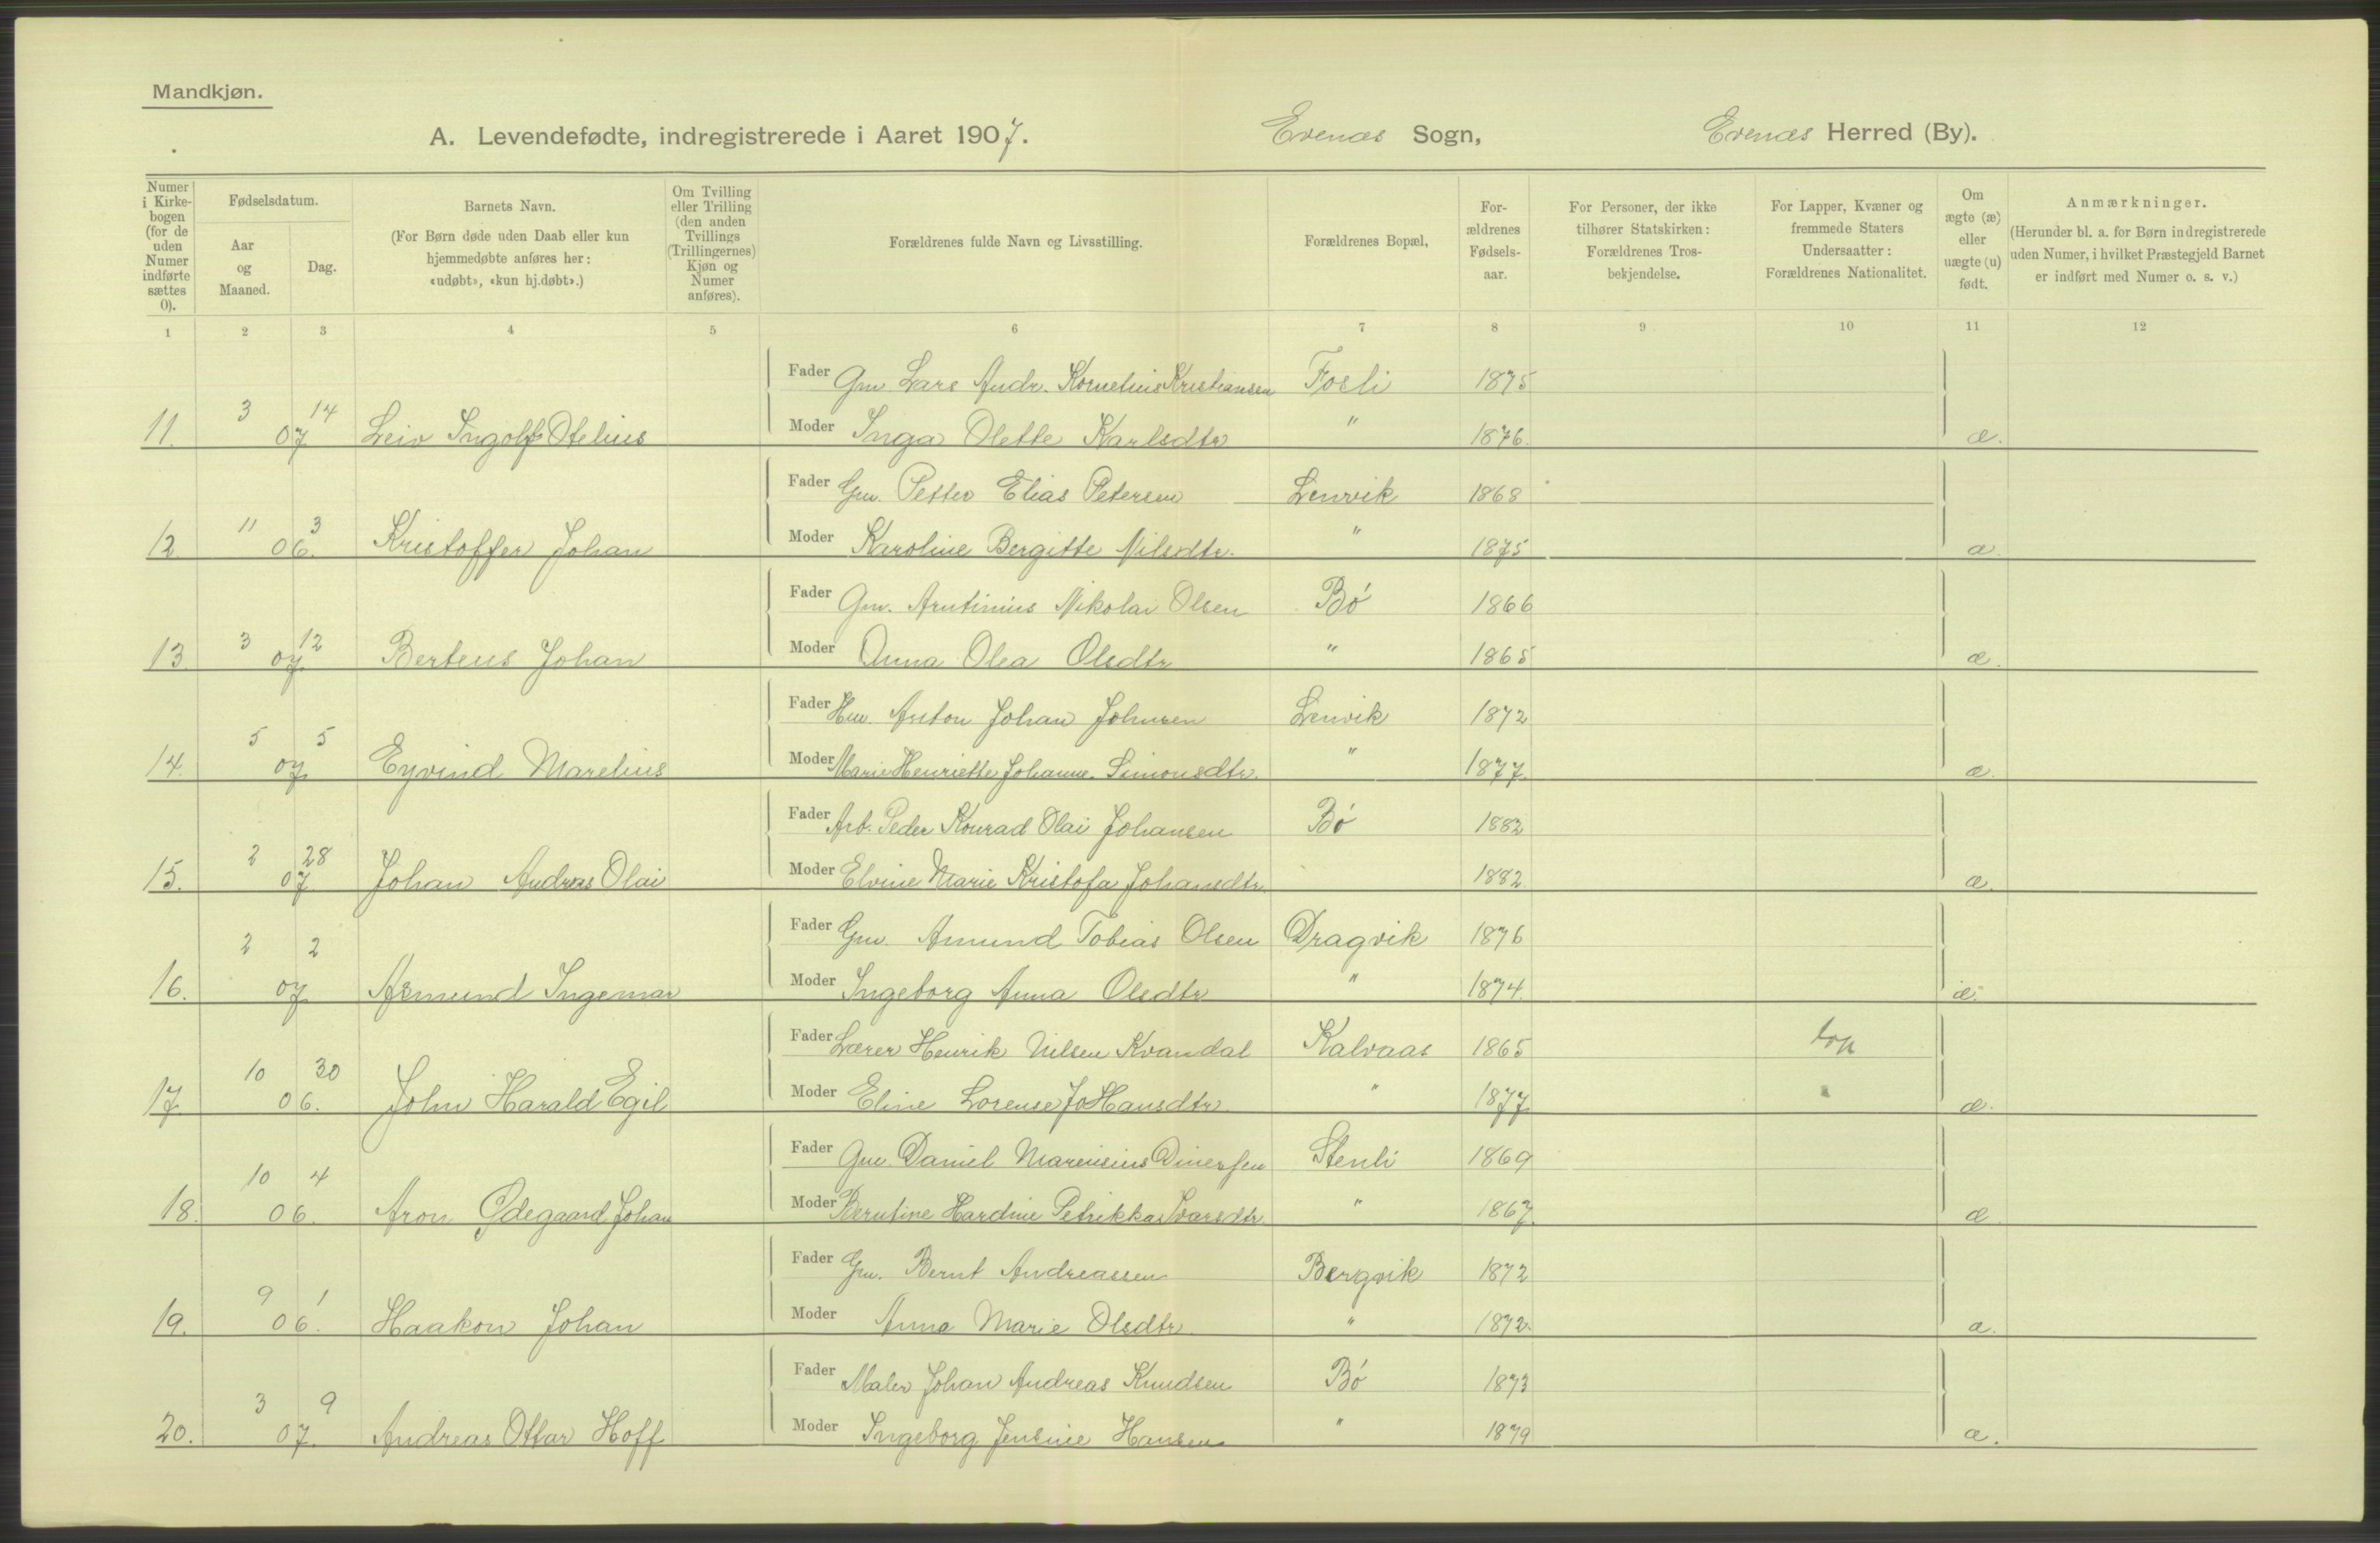 Mandkjøn.
A. Levendefødte, indregistrerede i Aaret 1907. Evenæs Sogn, Evenæs Herred (By).
Numer i Kirke-bogen (for de uden Numer indførte sættes 0).
Fødselsdatum.
Aar og Maaned.
Dag.
Barnets Navn.
(For Børn døde uden Daab eller kun hjemmedøbte anføres her: «udøbt», «kun hj.døbt».)
Om Tvilling eller Trilling (den anden Tvillings (Trillingernes) Kjøn og Numer anføres).
Forældrenes fulde Navn og Livsstilling.
Forældrenes Bopæl,
For-ældrenes Fødsels-aar.
For Personer, der ikke tilhører Statskirken: Forældrenes Tros-bekjendelse.
For Lapper, Kvæner og fremmede Staters Undersaatter: Forældrenes Nationalitet.
Om ægte (æ) eller uægte (u) født.
Anmærkninger.
(Herunder bl. a. for Børn indregistrerede uden Numer, i hvilket Præstegjeld Barnet er indført med Numer o. s. v.)
1 2 3 4 5 6 7 8 9 10 11 12
Fader Gm Lars Andr. Kornelius Kristiansen Fosli 1875
11. 3 07 14 Leiv Ingolf Otelius Moder Inga Olette Karlsdtr " 1876. æ.
Fader Gm. Petter Elias Petersen Lenvik 1868
12 11 06. 3 Kristoffer Johan Moder Karoline Bergitte Nilsdtr. " 1875 æ.
Fader Gm. Arntinius Nikolai Olsen Bó 1866
13 3 07. 12 Berteus Johan Moder Anna Olea Olsdtr " 1865 æ.
Fader Hm. Anton Johan Johnsen Lenvik 1872
14. 5 07. 5 Eyvind Marelius Moder Marie Henriette Johanne Simonsdtr. " 1877. æ.
Fader Arb. Peder Konrad Olai Johansen Bó 1882
15. 2 07 28 Johan Andreas Olai Moder Elvine Marie Kristofa Johansdtr 1882 æ.
Fader Gm. Amund Tobias Olsen Dragvik 1876
16. 2 07. 2 Asmund Ingemar Moder Ingeborg Anna Olsdtr " 1874. æ.
Fader Lærer Henrik Nilsen Kvandal Kalvaas 1865 lap
17. 10 06. 30 John Harald Egil Moder Eline Lorense JoHansdtr. " 1877. " æ.
Fader Gm. Daniel Marensius Dinersen Stenli 1869
18. 10 06. 4 Aron Ødegaard Johan Moder Berntine Hardine Petrikka Ivarsdtr. " 1867. æ
Fader Gm. Bernt Andreassen Bergvik 1872
19. 9 06. 1 Haakon Johan Moder Anna Marie Olsdtr. " 1872. æ.
Fader Maler Johan Andreas Knudsen Bó 1873
20. 3 07. 9 Andreas Ottar Hoff Moder Ingeborg Jensine Hansen " 1879 æ.